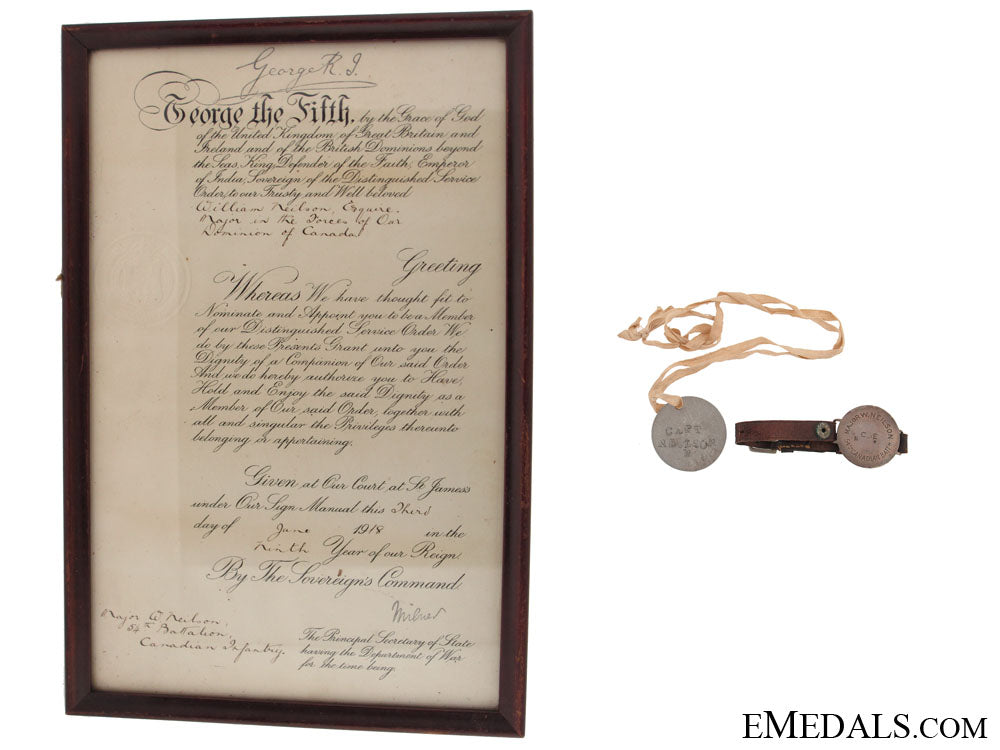 George R.I.
George the Fifth, by the Grace of God
of the United Kingdom of Great Britain and
Ireland and of the British Dominions beyond
the Seas, King, Defender of the Faith, Emperor
of India, Sovereign of the Distinguished Service
Order, to our Trusty and Well beloved
William Neilson, Esquire.
Major in the Forces of Our
Dominion of Canada
Greeting
Whereas We have thought fit to
Nominate and Appoint you to be a Member
of our Distinguished Service Order We
do by these Presents Grant unto you the
Dignity of a Companion of Our said Order
And we do hereby authorize you to Have,
Hold and Enjoy the said Dignity as a
Member of Our said Order, together with
all and singular the Privileges thereunto
belonging or appertaining.
Given at Our Court at St James's
under Our Sign Manual this Third
day of June 1918 in the
Ninth Year of our Reign.
By The Sovereign's Command.
Milner
Major W Neilson,
54th Battalion,
Canadian Infantry.
The Principal Secretary of State
having the Department of War
for the time being.
CAPT
NEILSON
MAJOR W. NEILSON
C.E.
EMEDALS.COM